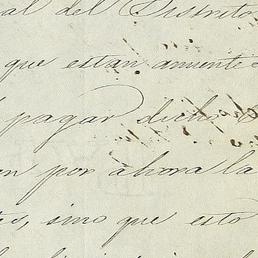 al del Distrito
que estan
pagar dicho
n por ahora la
es, sino que esto